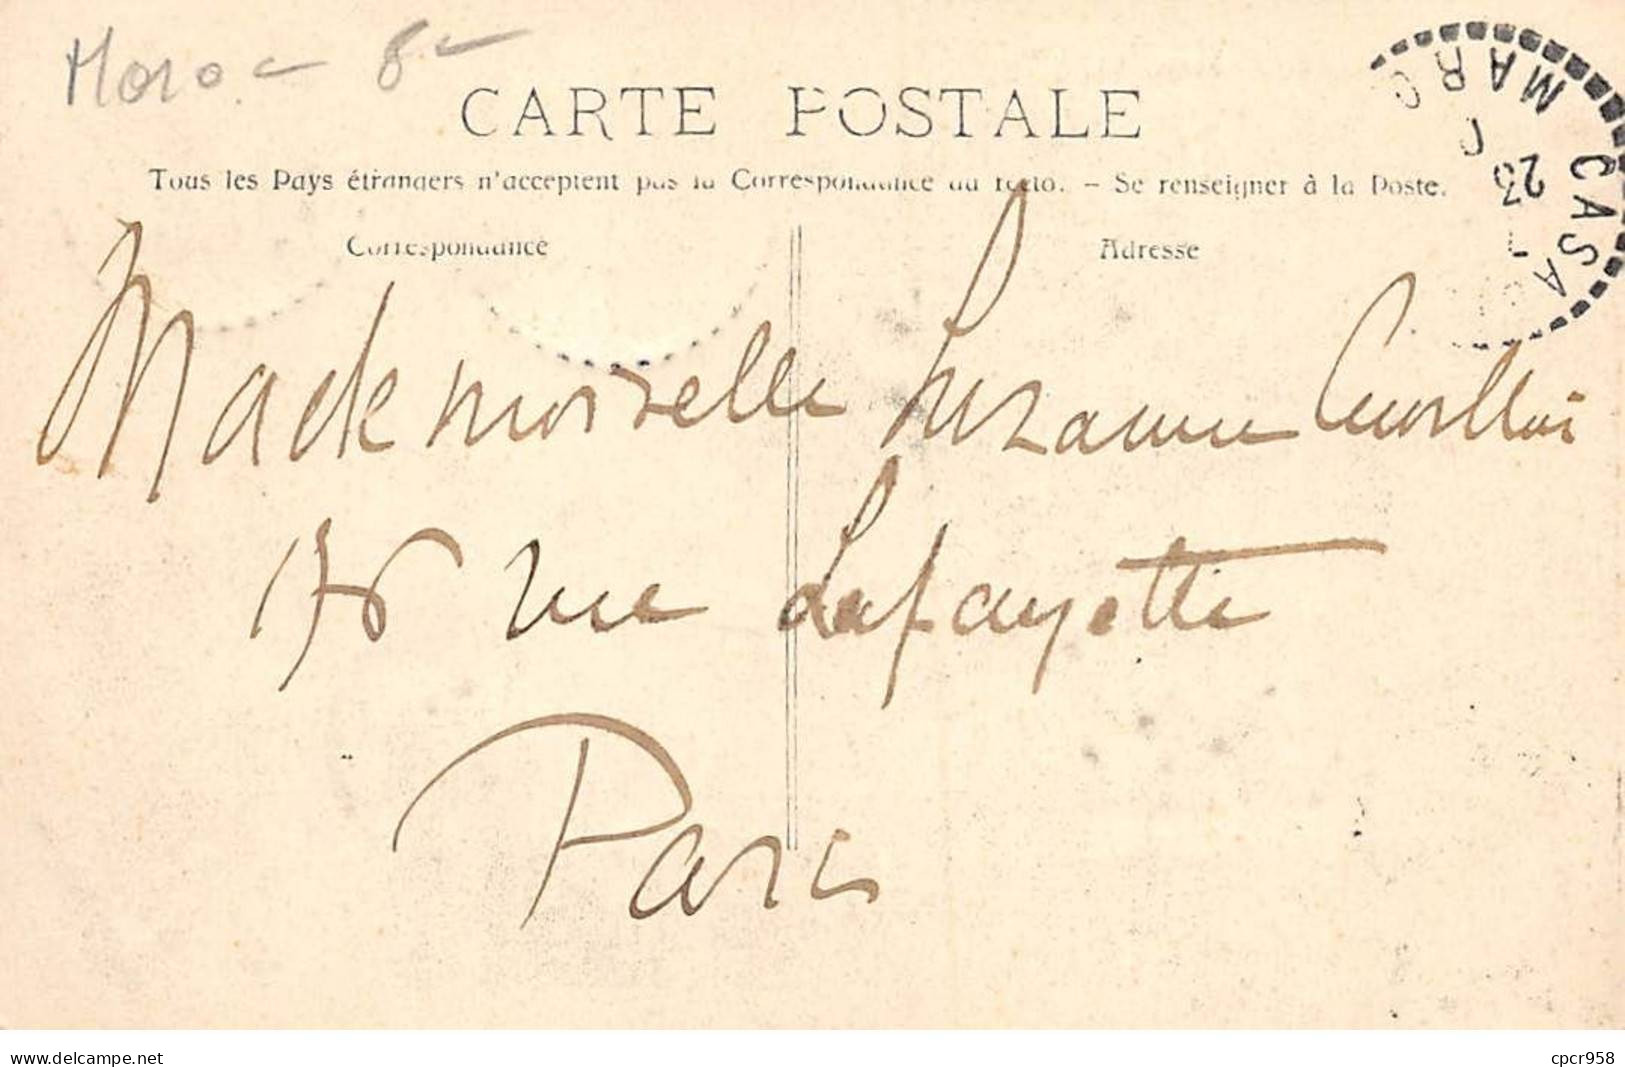 Maroc 8
CARTE POSTALE
Tous les Pays étrangers n'acceptent pas la Correspondance au recto. – Se renseigner à la Poste.
Correspondance
Adresse
CASA
MAROC
23
Mademoiselle Suzanne
176 rue Lafayette
Paris
www.delcampe.net
cpcr958